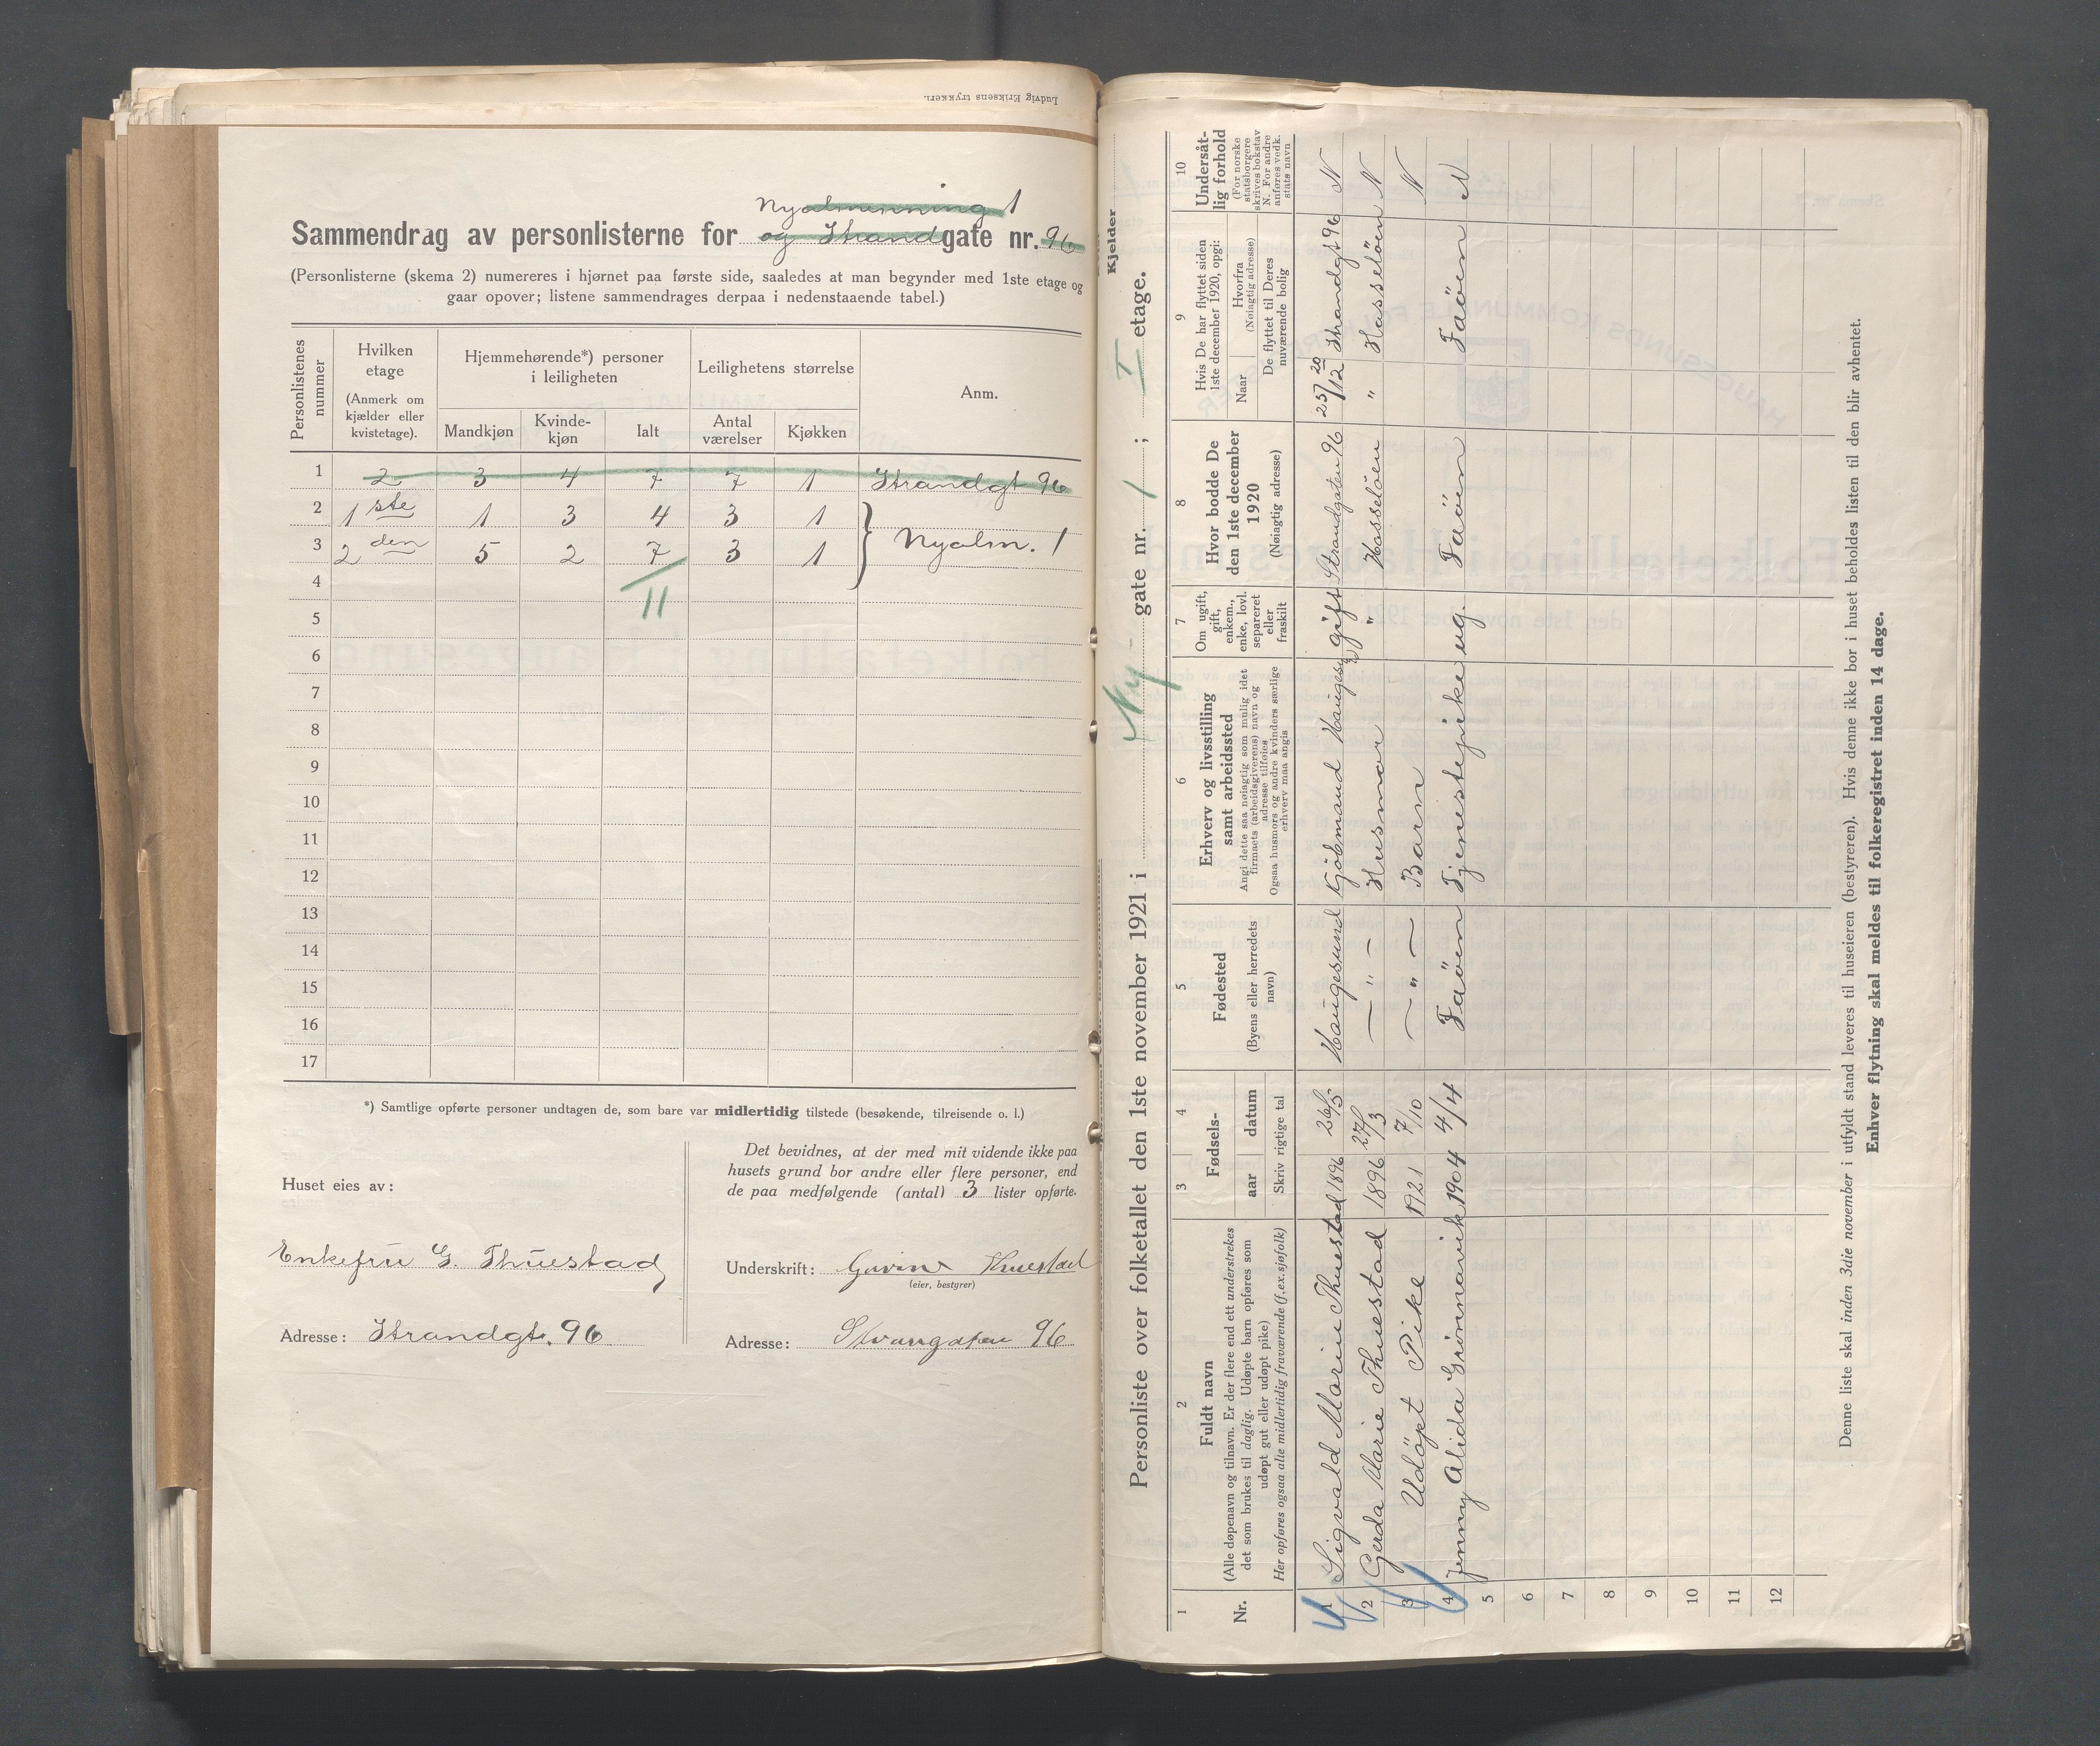 Ludvig Eriksens trykkeri.
Nyalmenning 1
Sammendrag av personlisterne for og Strandgate nr. 96
(Personlisterne (skema 2) numereres i hjørnet paa første side, saaledes at man begynder med 1ste etage og
gaar opover; listene sammendrages derpaa i nedenstaaende tabel.)
Personlistenes nummer
Hvilken etage (Anmerk om kjælder eller kvistetage).
Hjemmehørende*) personer i leiligheten
Leilighetens størrelse
Anm.
Mandkjøn Kvindekjøn Ialt Antal værelser Kjøkken
1 2 3 4 7 7 1 Strandgt 96
2 1ste 1 3 4 3 1
3 2den 5 2 7 3 1 } Nyalm. 1
4
11
5
6
7
8
9
10
11
12
13
14
15
16
17
*) Samtlige opførte personer undtagen de, som bare var midlertidig tilstede (besøkende, tilreisende o. l.)
Huset eies av:
Enkefru G. Thuestad
Adresse: Strandgt. 96
Det bevidnes, at der med mit vidende ikke paa
husets grund bor andre eller flere personer, end
de paa medfølgende (antal) 3 lister opførte.
Underskrift: Gurine Thuestad
(eier, bestyrer)
Adresse: Strangaten 96
Kjelder
Personliste over folketallet den 1ste november 1921 i Ny- gate nr. 1; I etage.
1 2 3 4 5 6 7 8 9 10
Nr.
Fuldt navn
(Alle døpenavn og tilnavn. Er der flere end ett understrekes
det som brukes til daglig. Udøpte barn opføres som
udøpt gut eller udøpt pike)
Her opføres ogsaa alle midlertidig fraværende (f.ex. sjøfolk)
Fødsels-
aar datum
Skriv rigtige tal
Fødested
(Byens eller herredets navn)
Erhverv og livsstilling
samt arbeidssted
Angi dette saa nøiagtig som mulig idet
firmaets (arbeidsgiverens) navn og
adresse tilføies
Ogsaa husmors og andre kvinders særlige
erhverv maa angis
Om ugift,
gift,
enkem.,
enke, lovl.
separeret
eller
fraskilt
Hvor bodde De
den 1ste december
1920
(Nøiagtig adresse)
Hvis De har flyttet siden
1ste december 1920, opgi:
Naar
Hvorfra
(Nøiagtig adresse)
De flyttet til Deres
nuværende bolig
Undersåt-
lig forhold
(For norske
statsborgere
skrives bokstav
N. For andre
anføres vedk.
stats navn
1 Sigvald Marin Thuestad 1896 26/5 Haugesund Kjöbmand Haugesu gift Strandgaten 96 25/12 20 Strandgt 96 N
2 Gerda Marie Thuestad 1896 27/3 — " — Husmor " Hasselöen " Hasselöen N
3 Udöpt Pike 1921 7/10 — " — Barn N
4 Jenny Alida Grönnavik 1904 4/4 Faöen Tjenestepike ug. Faöen Faöen N
5
6
7
8
9
10
11
12
Denne liste skal inden 3die november i utfyldt stand leveres til huseieren (bestyreren). Hvis denne ikke bor i huset beholdes listen til den blir avhentet.
Enhver flytning skal meldes til folkeregistret inden 14 dage.